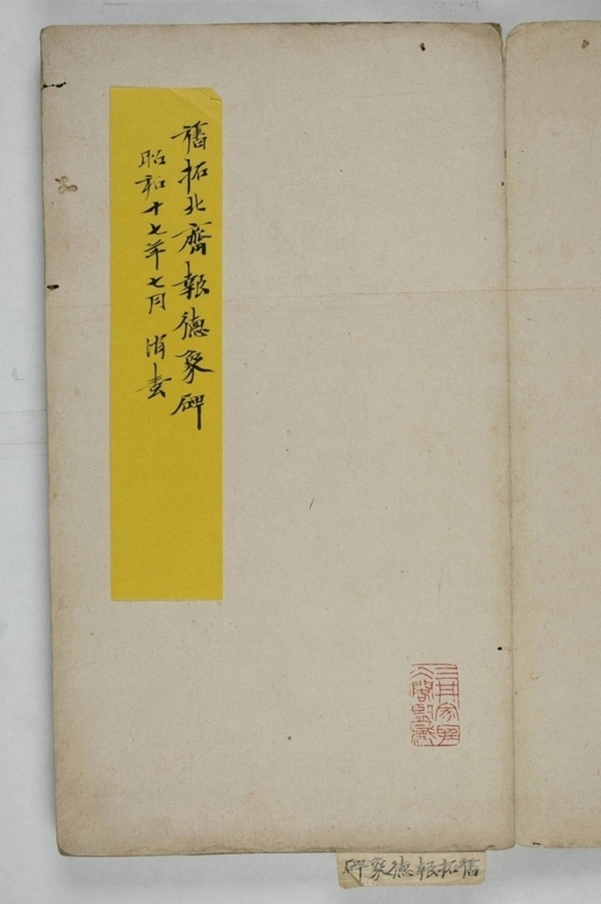 舊拓北齊報德象碑
昭和十七年七月 消
三井家鑒
舊拓報德象碑